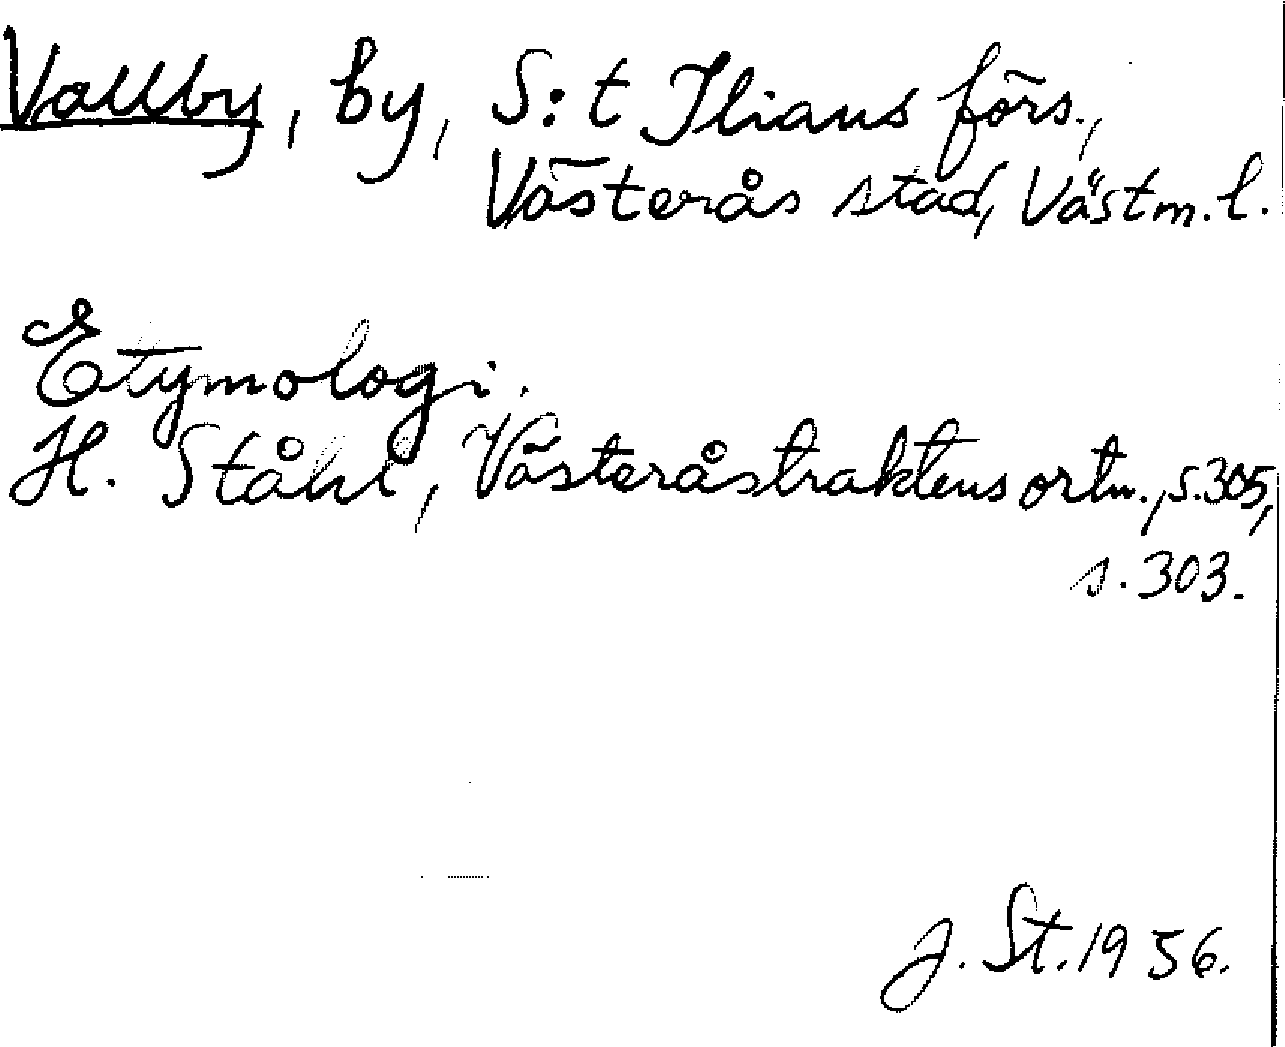 Vallby, by, S:t Ilians förs.,
Västerås stad, Västm. l.
Etymologi.
H. Ståhl, Västeråstraktens ortn., s. 305,
s. 303.
J. St. 1956.